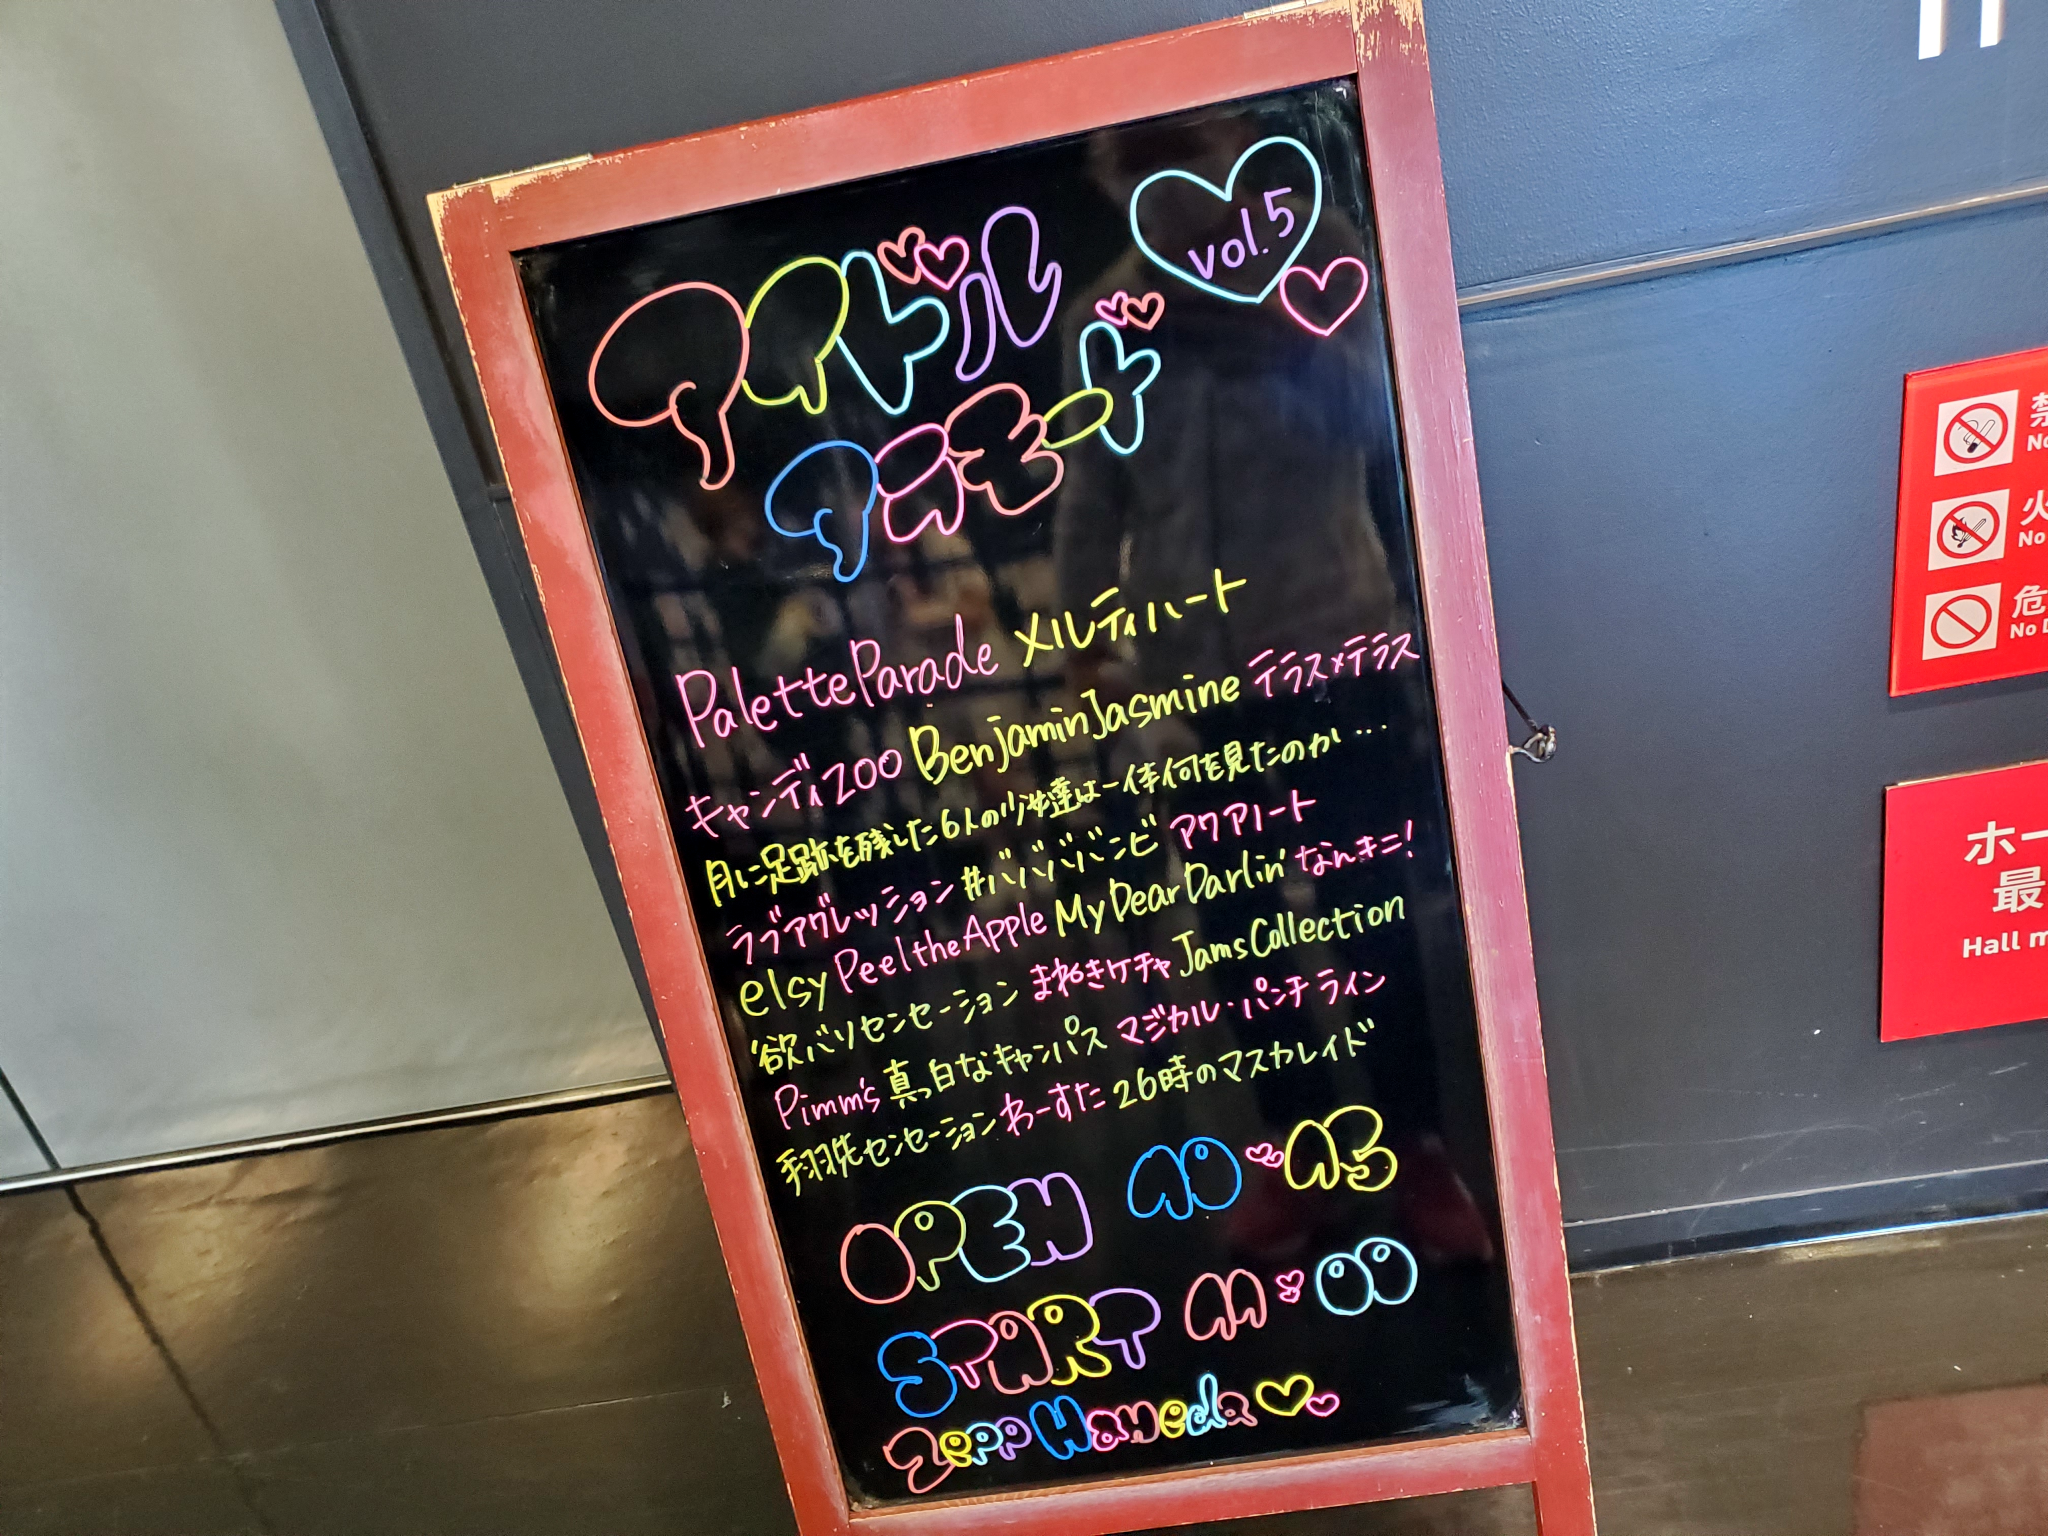 アイドル
アラモード
vol.5
PaletteParade メルティハート
キャンディzoo BenjaminJasmine テラス×テラス
月に足跡を残した6人の少女達は一体何を見たのか…
ラブアグレッション #ババババンビ アクアノート
elsy PeeltheApple MyDearDarlin' なんキニ!
欲バリセンセーション まねきケチャ JamsCollection
Pimm's 真っ白なキャンバス マジカル・パンチライン
翔先センセーション わーすた 26時のマスカレイド
OPEN 10 45
START 11 00
Zepp Haneda
No
No
No
ホー
最
Hall m